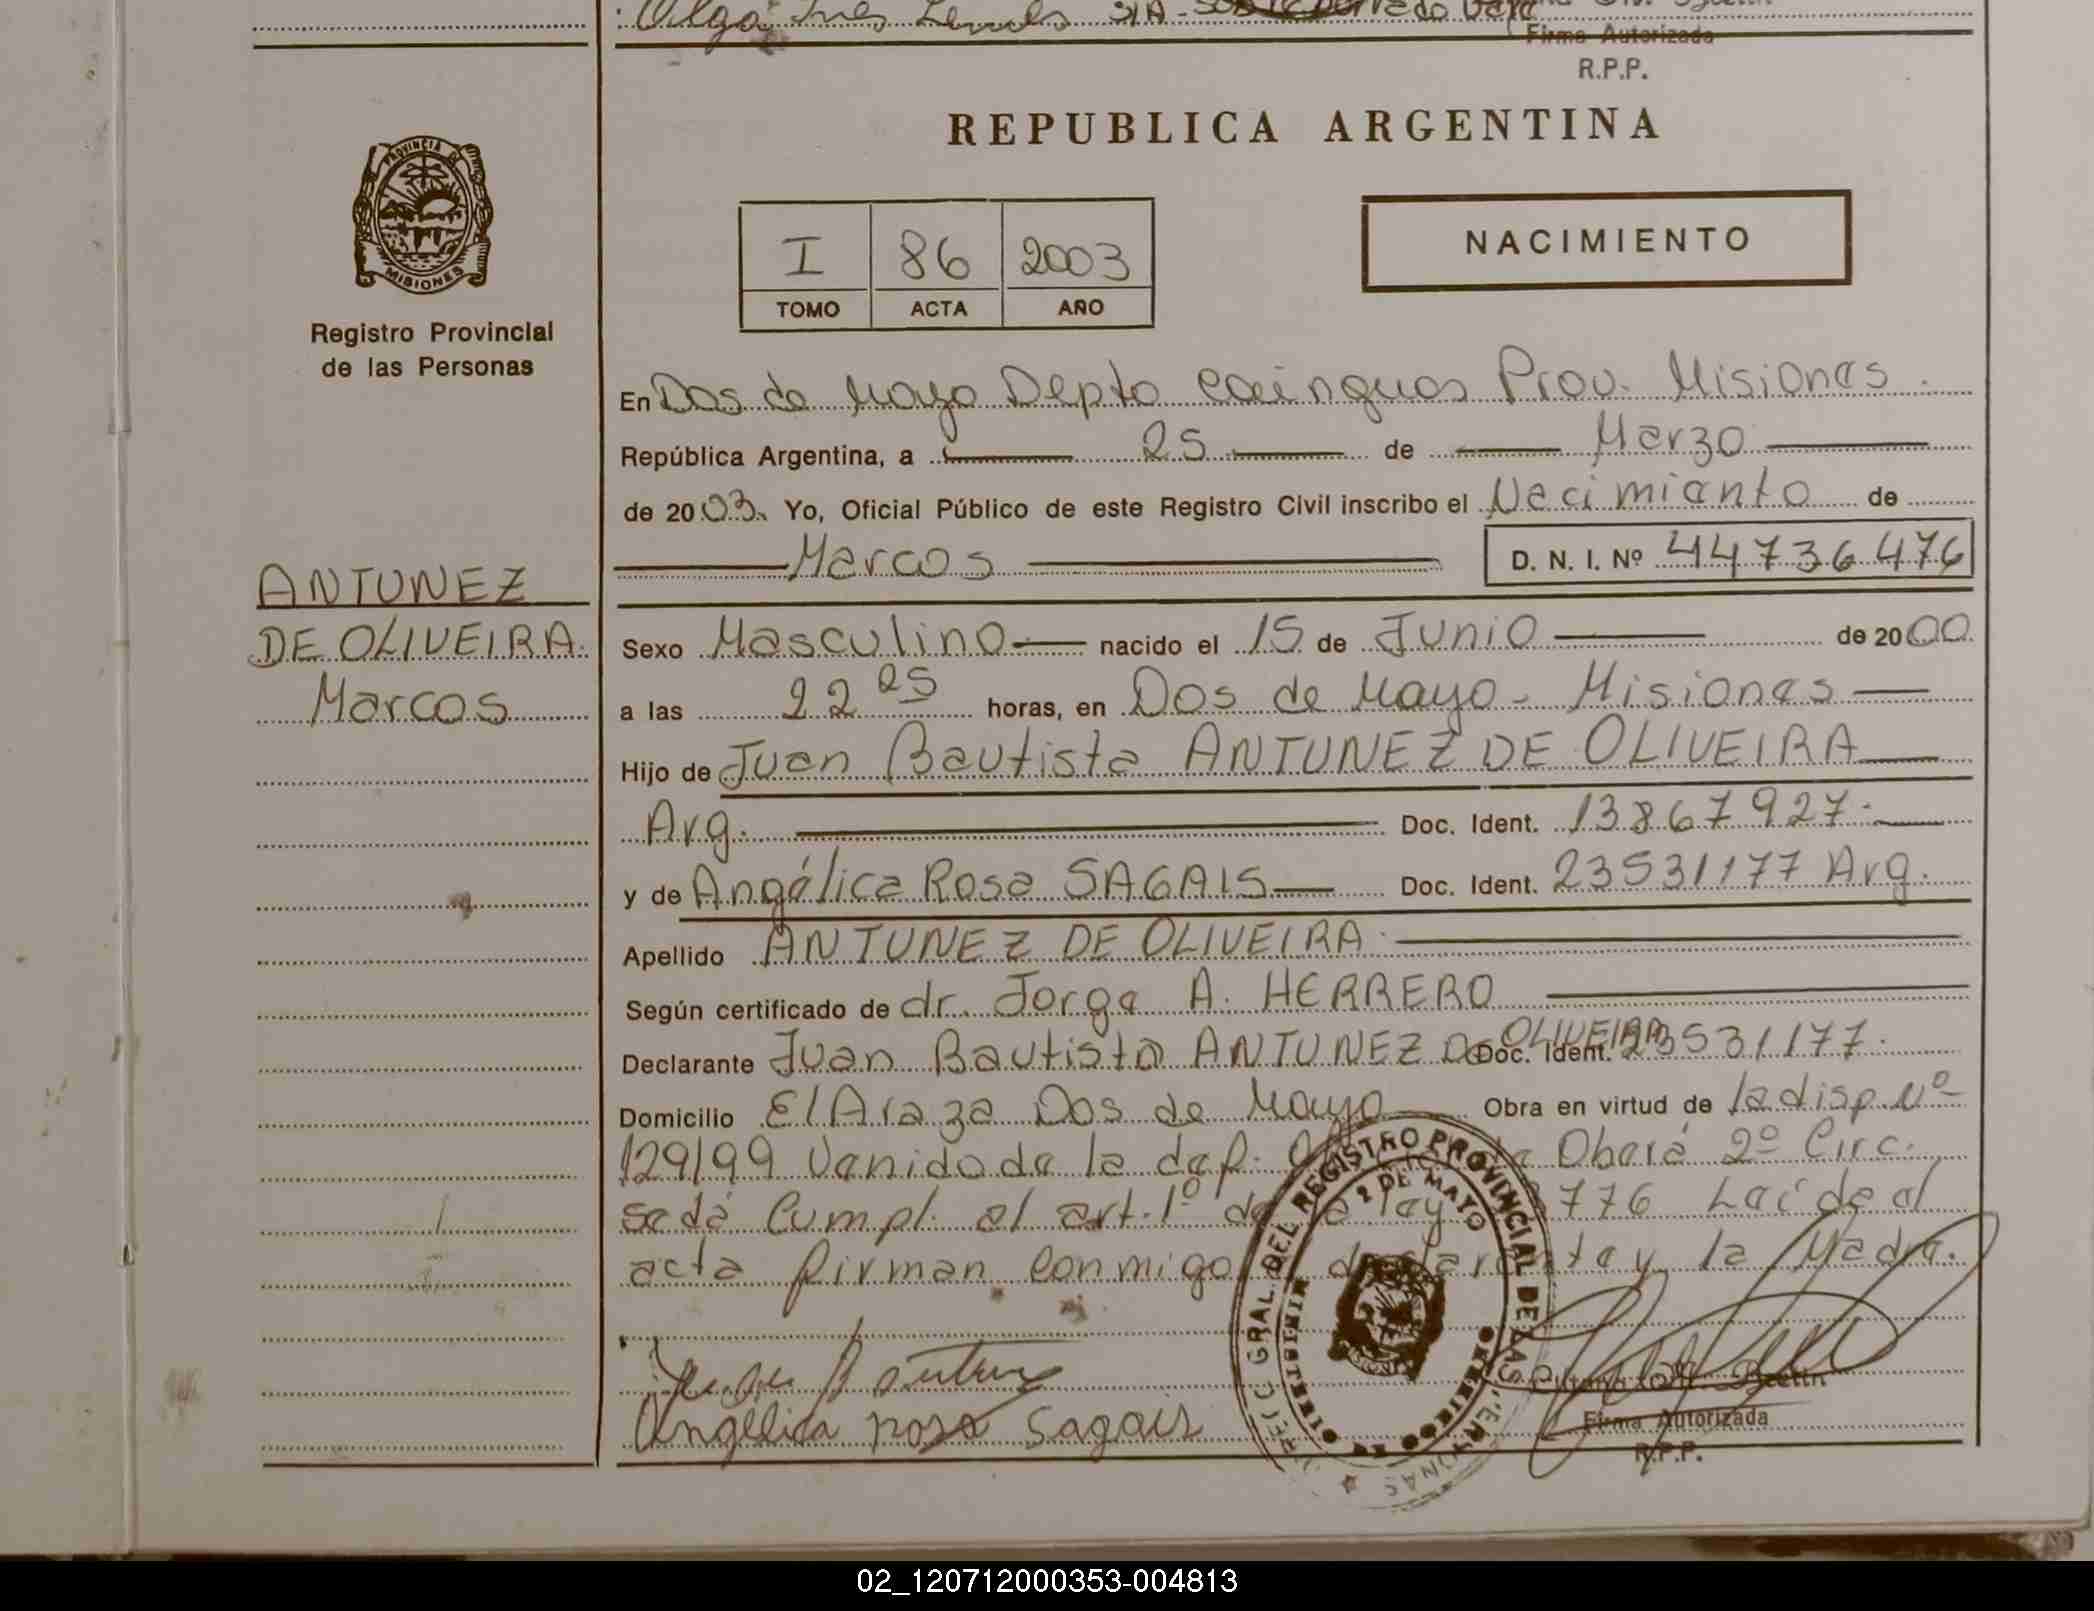 Olga Ines
Firma Autorizada
R.P.P.
REPUBLICA ARGENTINA
PROVINCIA DE
MISIONES
Registro Provincial
de las Personas
I 86 2003
TOMO ACTA AÑO
NACIMIENTO
En Dos de Mayo Depto Cainguas Prov. Misiones.
República Argentina, a 25 de Marzo
de 2003. Yo, Oficial Público de este Registro Civil inscribo el Nacimiento de
Marcos D. N. I. Nº 44736476
ANTUNEZ
DE OLIVEIRA.
Marcos
Sexo Masculino nacido el 15 de Junio de 2000
a las 22 25 horas, en Dos de Mayo - Misiones
Hijo de Juan Bautista ANTUNEZ DE OLIVEIRA
Arg. Doc. Ident. 13867927.
y de Angélica Rosa SAGAIS Doc. Ident. 23531177 Arg.
Apellido ANTUNEZ DE OLIVEIRA.
Según certificado de dr. Jorge A. HERRERO
Declarante Juan Bautista ANTUNEZ De OLIVEIRA Doc. Ident. 23531177.
Domicilio El Araza Dos de Mayo Obra en virtud de la disp. Nº
129/99 Venido de la def. Oberá 2º Circ.
se dá Cumpl. al art. 1º de la ley 776 Leída el
acta firman conmigo declarante y la Madre.
Angélica rosa Sagais
DIRECC. GRAL. DEL REGISTRO PROVINCIAL DE LAS PERSONAS
2 DE MAYO
Firma Autorizada
R.P.P.
02_120712000353-004813